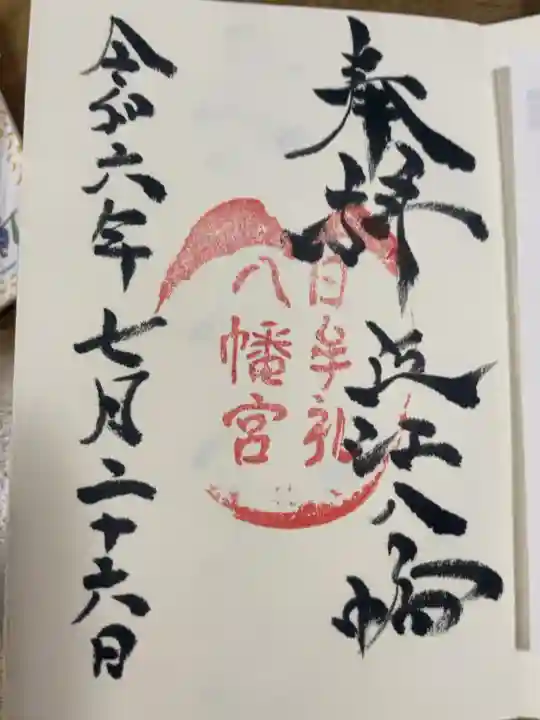 奉拝
近江八幡
日牟礼
八幡宮
令和六年七月二十六日